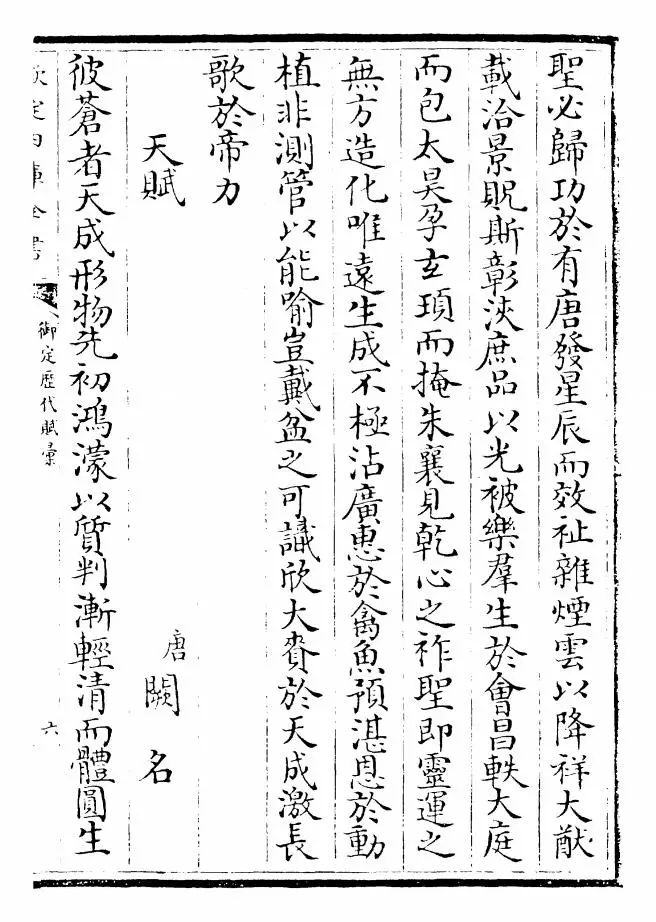 聖必歸功於有唐發星辰而效祉雜煙雲以降祥大猷
載洽景貺斯彰浹庶品以光被樂羣生於會昌軼大庭
而包太昊孕玄頊而掩朱襄見乾心之祚聖即靈運之
無方造化唯遠生成不極沾廣惠於禽魚預湛恩於動
植非測管以能喻豈戴盆之可議欣大賚於天成激長
歌於帝力
天賦
唐闕名
彼蒼者天成形物先初鴻濛以質判漸輕清而體圓生
欽定四庫全書
御定歷代賦彙
六